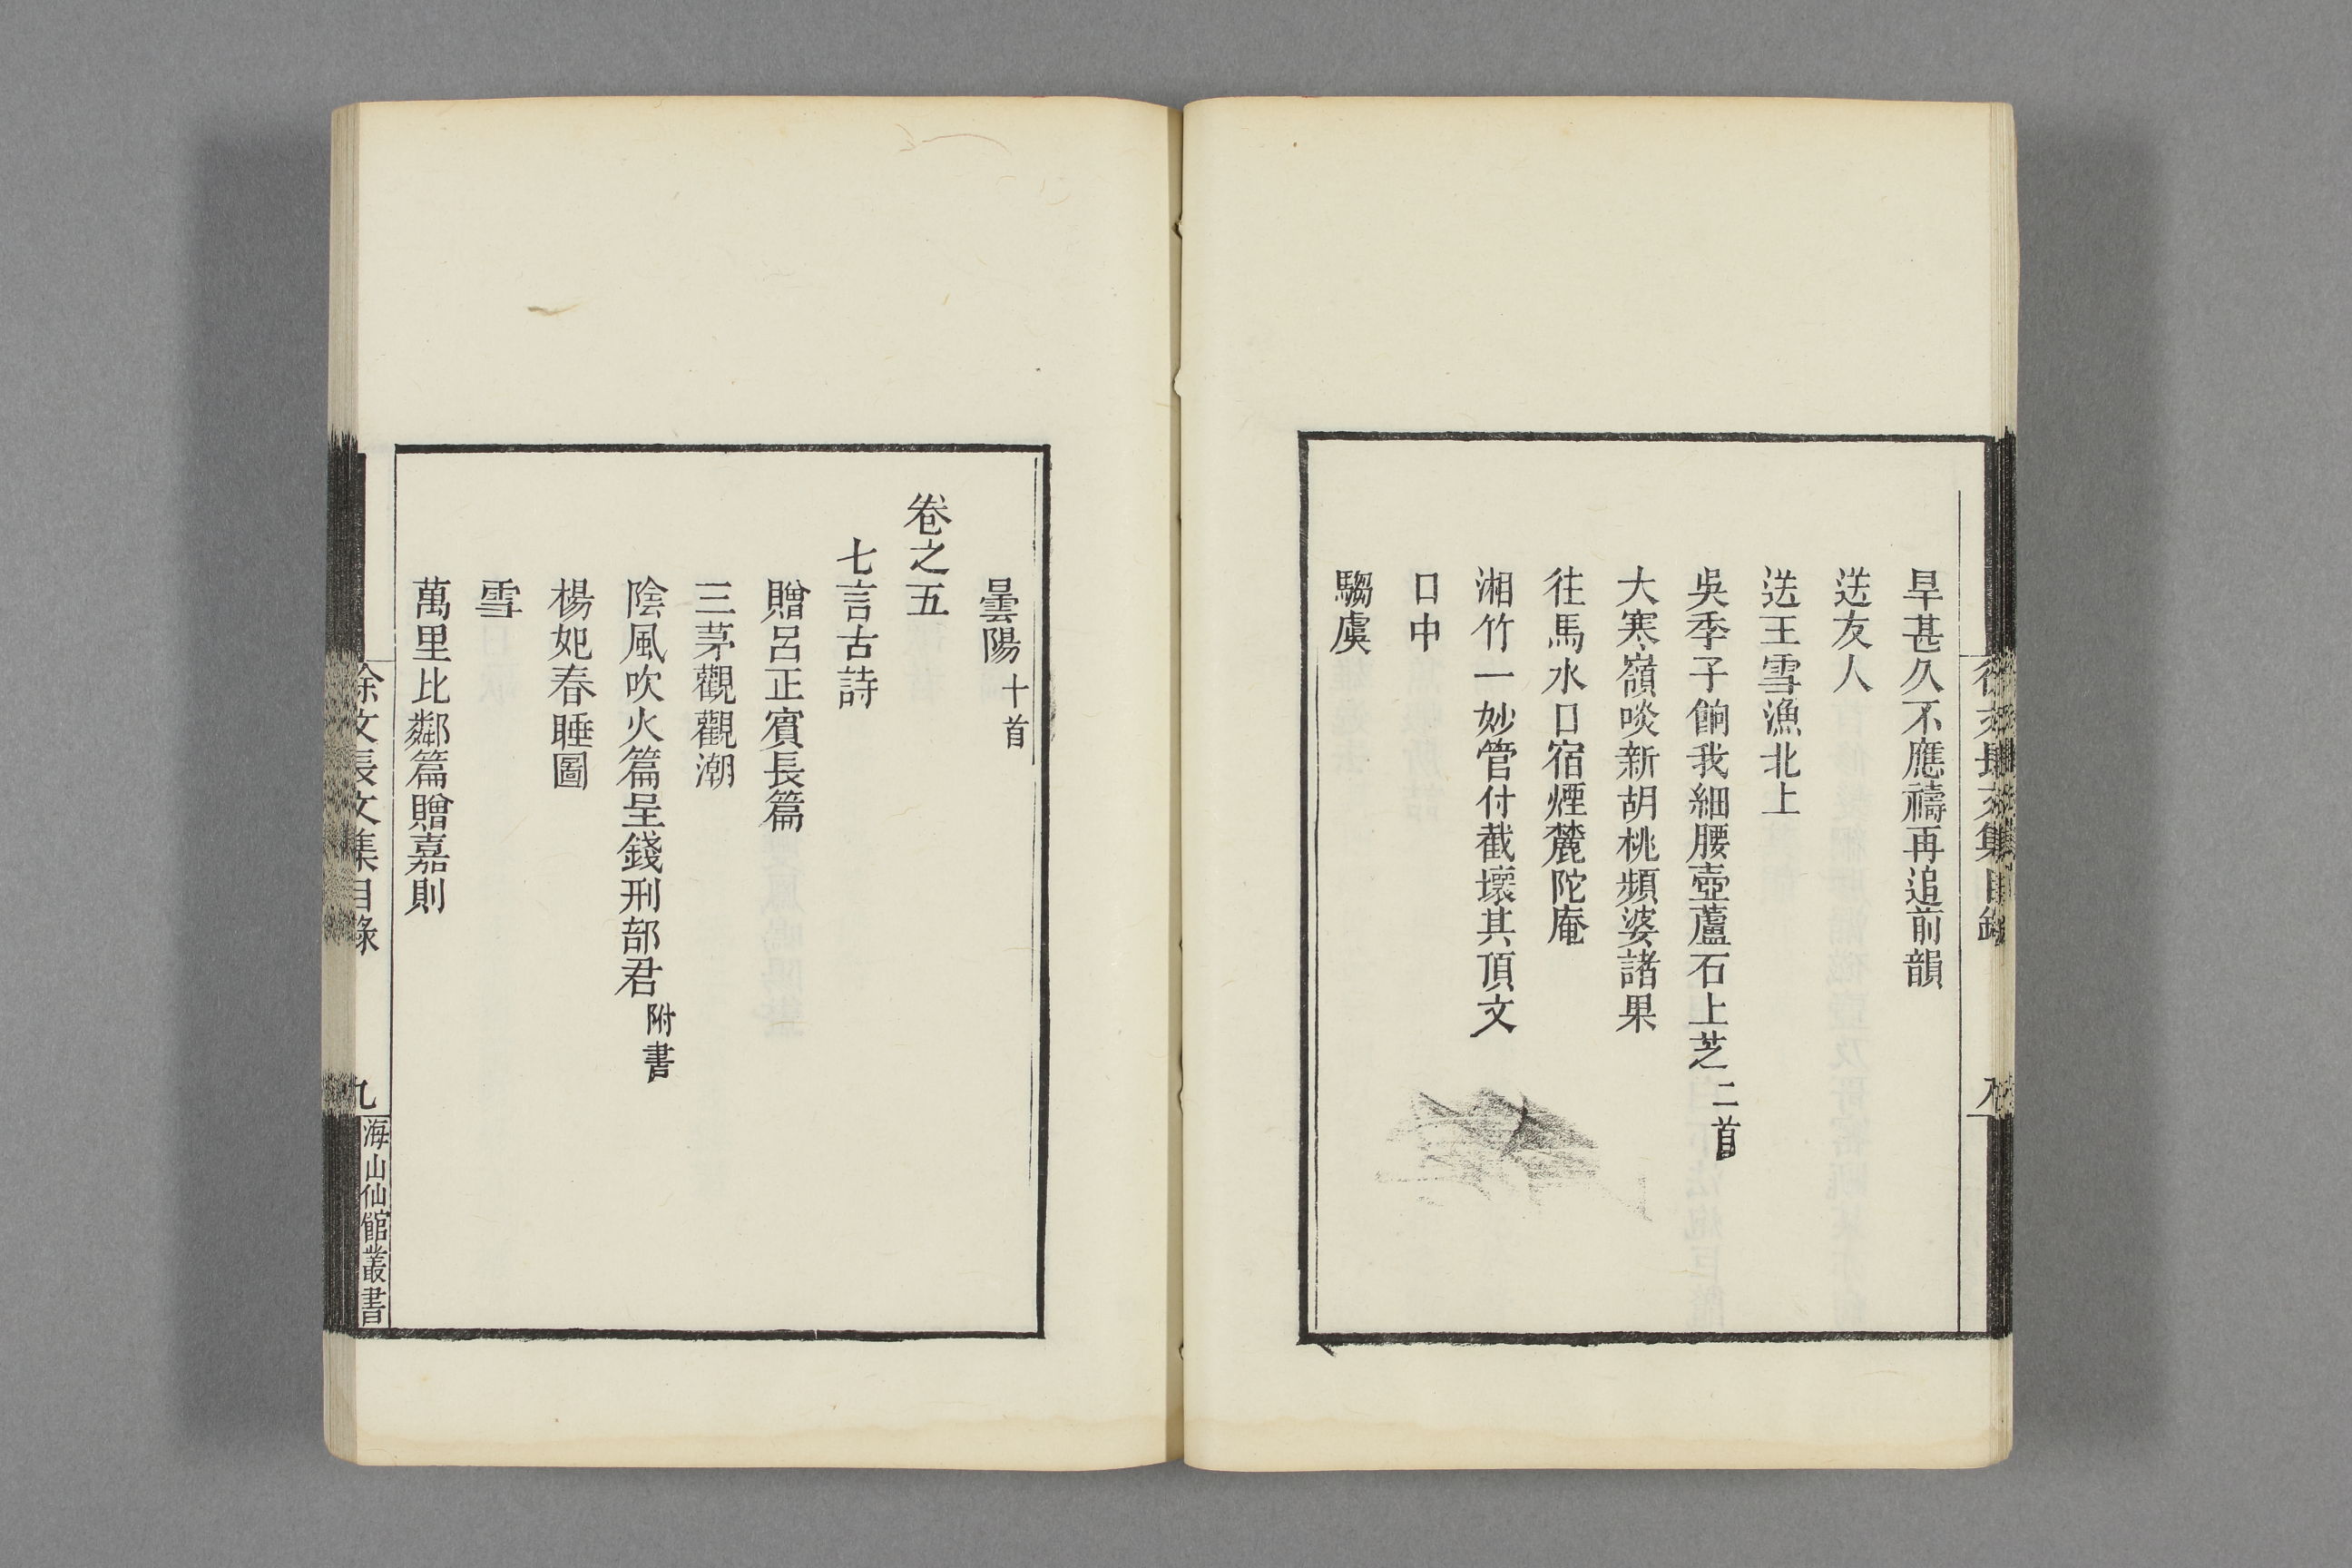 徐文長文集目錄
八
旱甚久不應禱再追前韻
送友人
送王雪漁北上
吳季子餉我細腰壺蘆石上芝二首
大寒嶺啖新胡桃頻婆諸果
往馬水口宿煙麓陀庵
湘竹一妙管付截壞其頂文
口申
騶虞
曇陽十首
卷之五
七言古詩
贈呂正賓長篇
三茅觀觀潮
陰風吹火篇呈錢刑部君附書
楊妃春睡圖
雪
萬里比鄰篇贈嘉則
徐文長文集目錄
九
海山仙館叢書